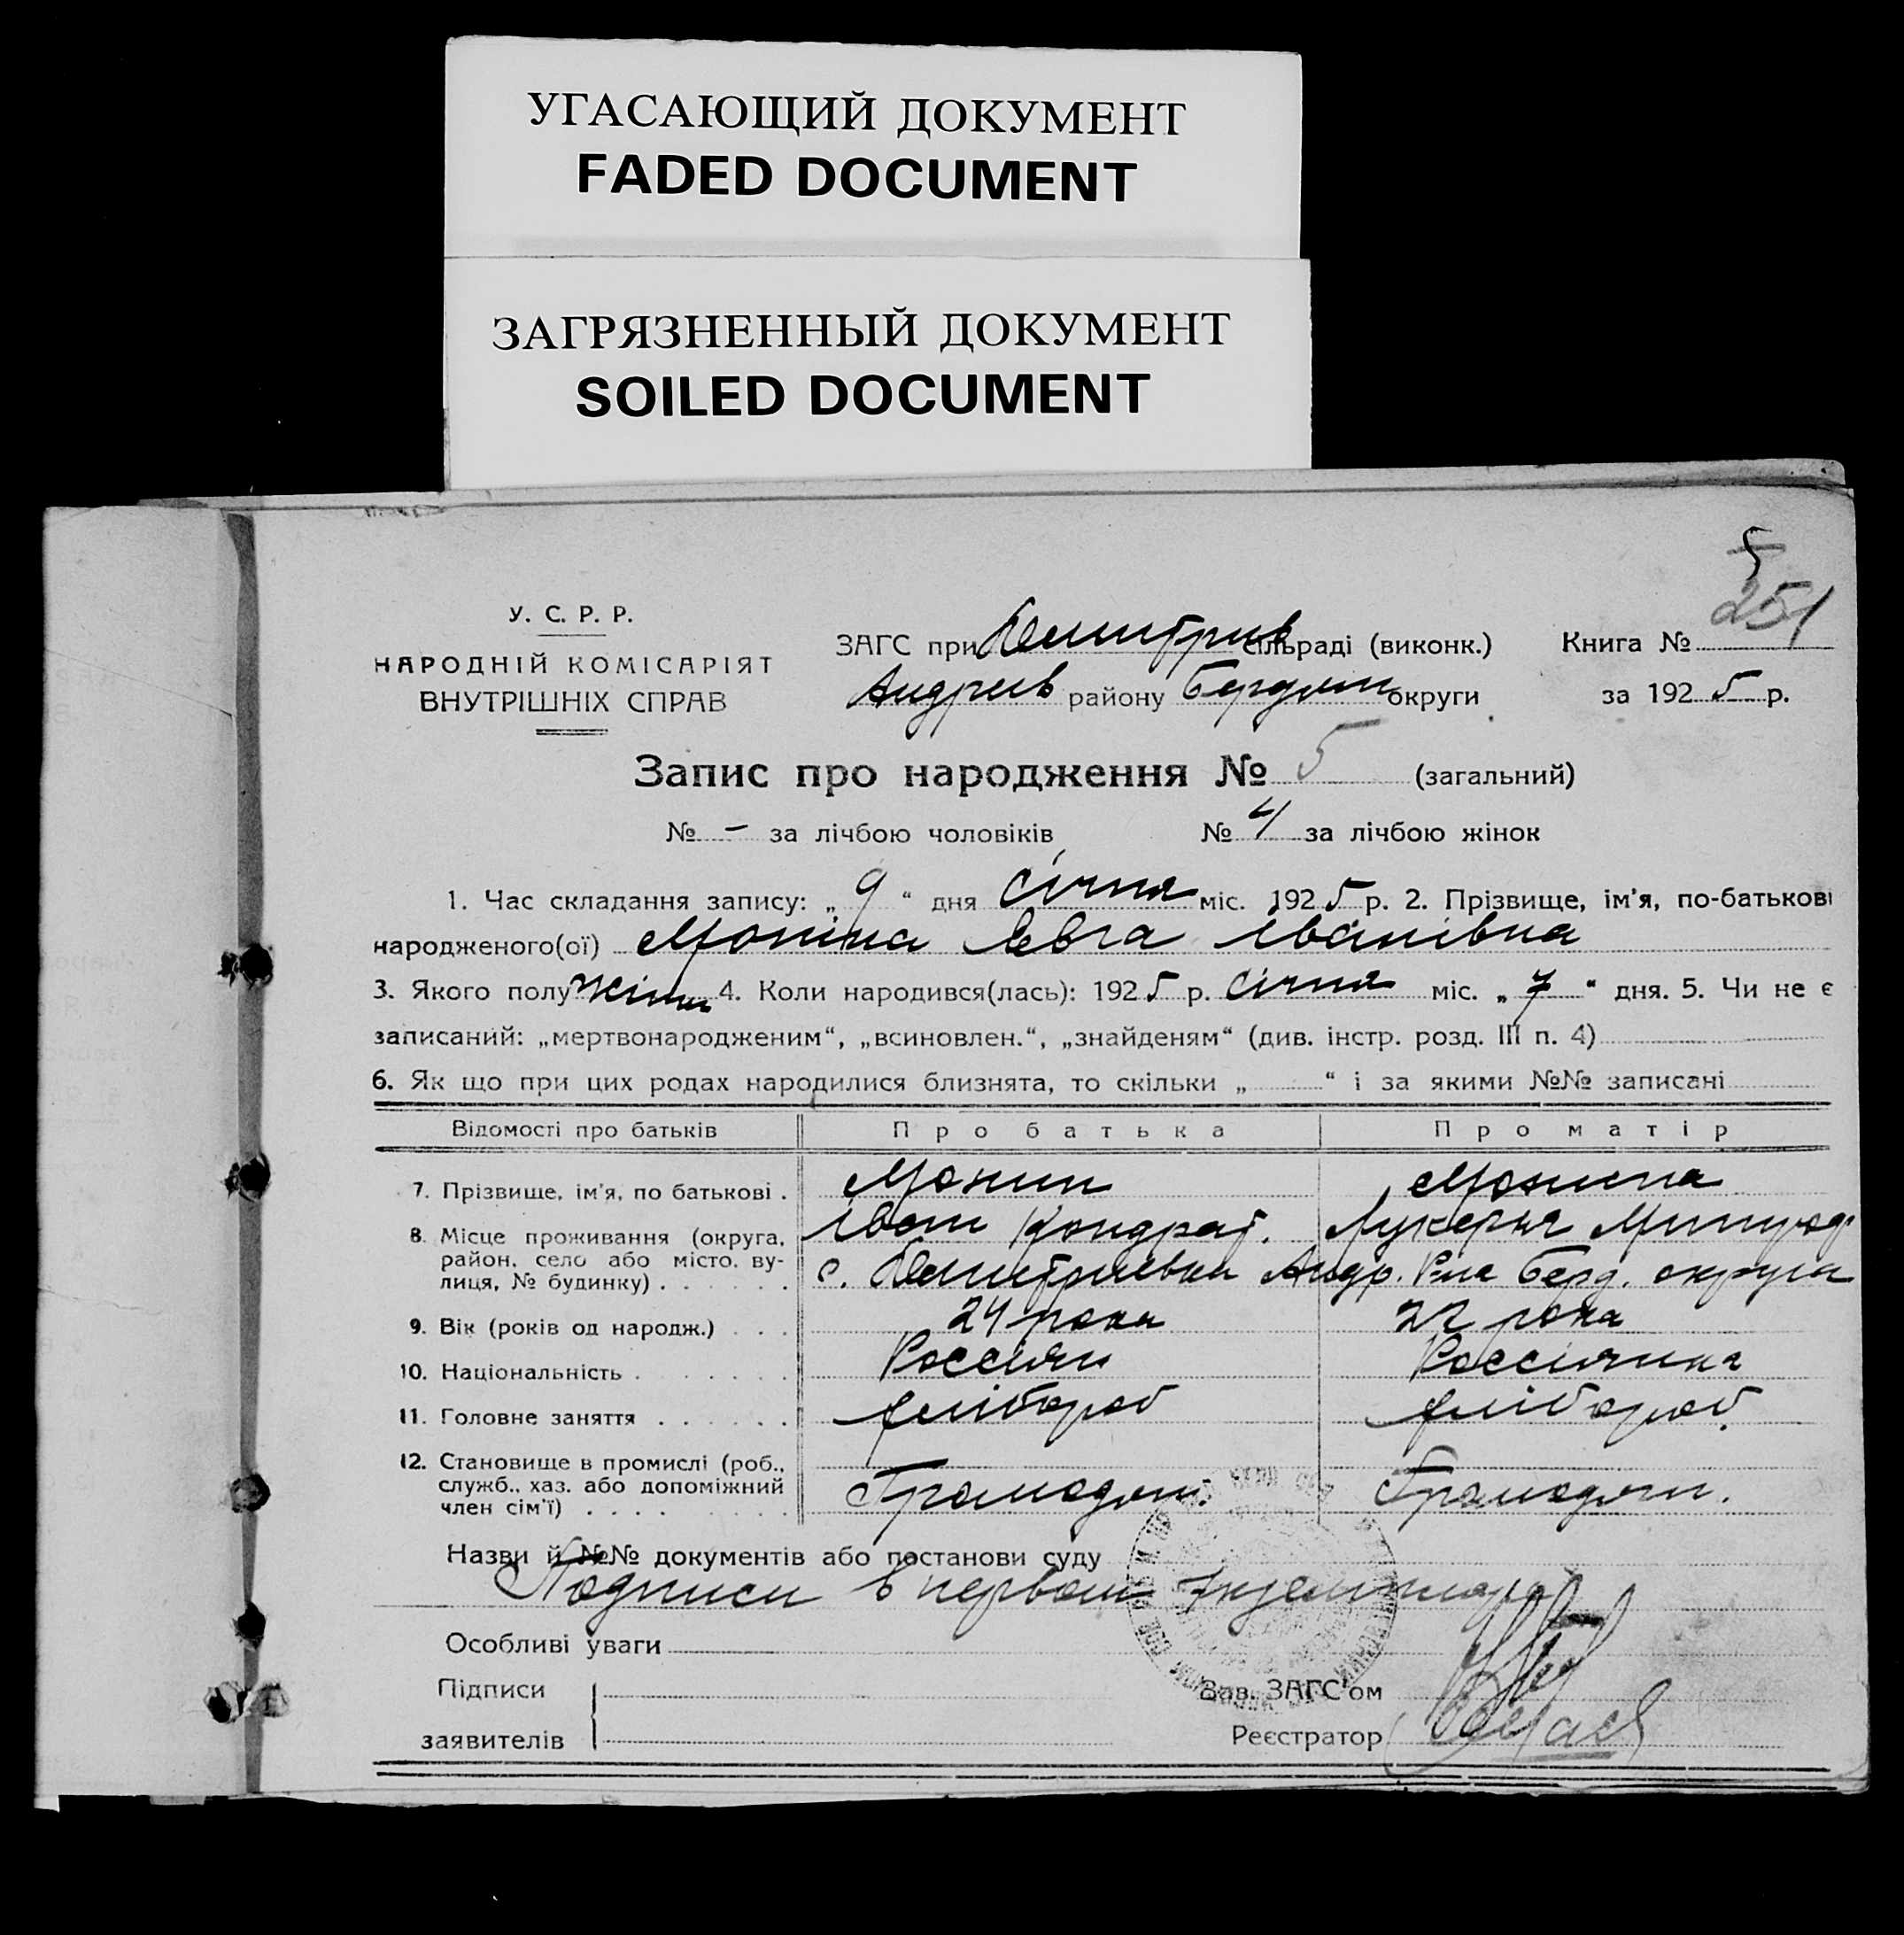 УГАСАЮЩИЙ ДОКУМЕНТ
FADED DOCUMENT
ЗАГРЯЗНЕННЫЙ ДОКУМЕНТ
SOILED DOCUMENT
5
251
У. С. Р. Р.
НАРОДНІЙ КОМІСАРІЯТ
ВНУТРІШНІХ СПРАВ
ЗАГС при Дмитрив сільраді (виконк.) Книга №
Андреев району Бердян округи за 1925 р.
Запис про народження № 5 (загальний)
№ – за лічбою чоловіків № 4 за лічбою жінок
1. Час складання запису: „ 9 “ дня Січня міс. 1925 р. 2. Прізвище, ім'я, по-батькові
народженого(ої) Моніна Євга Іванівна
3. Якого полу Жіноч 4. Коли народився(лась): 1925 р. Січня міс. „ 7 “ дня. 5. Чи не є
записаний: „мертвонародженим“, „всиновлен.“, „знайденям“ (див. інстр. розд. III п. 4)
6. Як що при цих родах народилися близнята, то скільки „ “ і за якими №№ записані
Відомості про батьків Про батька Про матір
7. Прізвище, ім'я, по батькові . Монин Монина
Іван Кондрат. Лукерья
8. Місце проживання (округа, район, село або місто, вулиця, № будинку) . . . . . . с. Дмитриевка Андр. Р-на Берд. округа
9. Вік (років од народж.) . . . 24 рока 22 рока
10. Національність . . . . . . . Россіян Россіянка
11. Головне заняття . . . . . . хлібороб хлібороб.
12. Становище в промислі (роб., служб., хаз. або допоміжний член сім'ї) . . . . . . . . Громадян. Громадян.
Назви й №№ документів або постанови суду
Подписи в первом экземпляре
Особливі уваги
Підписи
заявителів
Зав. ЗАГС'ом
Реєстратор